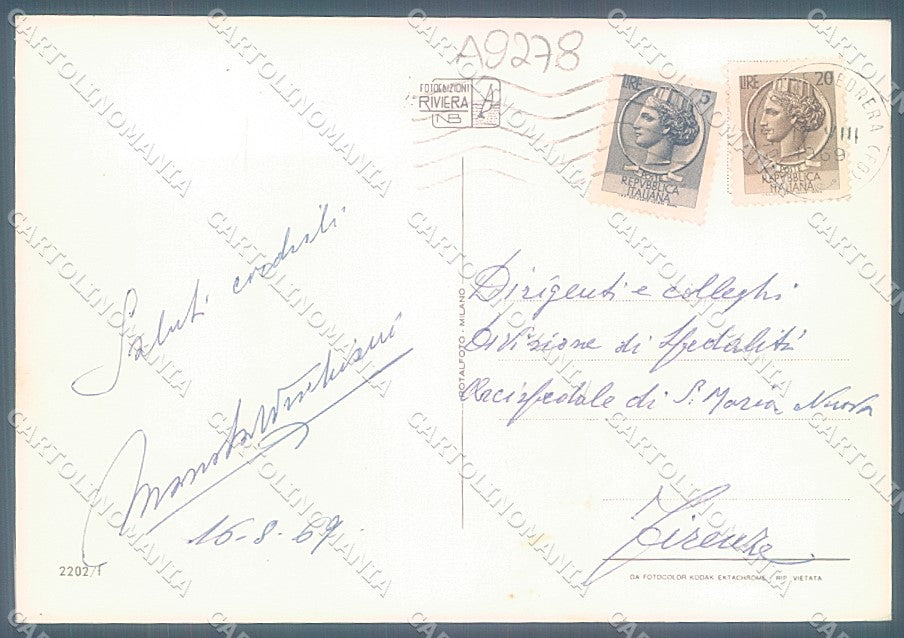 A9278
FOTOEDIZIONI
RIVIERA
NB
LIRE 5
POSTE
REPVBBLICA
ITALIANA
LIRE 20
POSTE
REPVBBLICA
ITALIANA
EDRERA (FO)
VIII
69
Saluti cordiali
16-8-69
2202/f
ROTALFOTO - MILANO
Dirigenti e colleghi
Divisione di Spedalità
Arcispedale di S. Maria Nuova
Firenze
DA FOTOCOLOR KODAK EKTACHROME - RIP. VIETATA
CARTOLINOMANIA